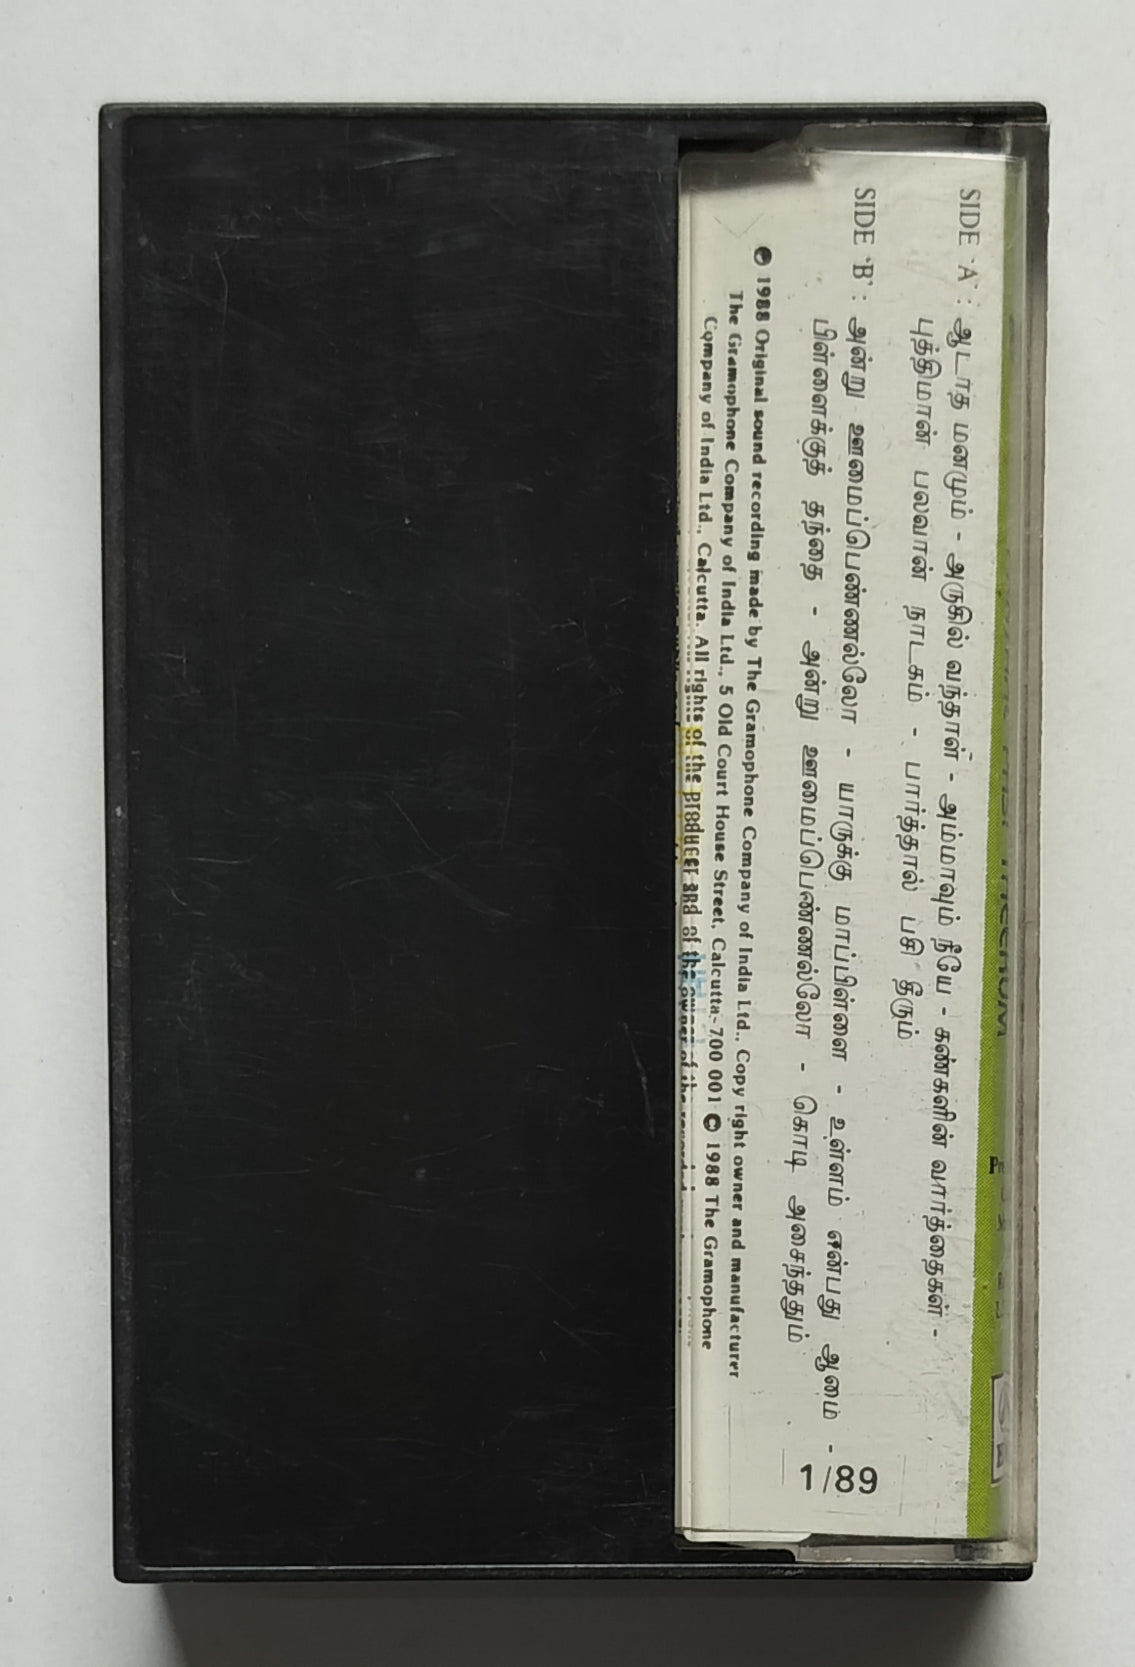 SIDE 'A' : ஆடாத மனமும் - அருகில் வந்தாள் - அம்மாவும் நீயே - கண்களின் வார்த்தைகள் -
புத்திமான் பலவான் நாடகம் - பார்த்தால் பசி தீரும்
SIDE 'B' : அன்று ஊமைப்பெண்ணல்லோ - யாருக்கு மாப்பிள்ளை - உள்ளம் என்பது ஆமை -
பிள்ளைக்குத் தந்தை - அன்று ஊமைப்பெண்ணல்லோ - கொடி அசைந்ததும்
℗ 1988 Original sound recording made by The Gramophone Company of India Ltd., Copy right owner and manufacturer
The Gramophone Company of India Ltd., 5 Old Court House Street, Calcutta-700 001 © 1988 The Gramophone
Company of India Ltd., Calcutta. All rights of the producer and of the owner of the
1/89